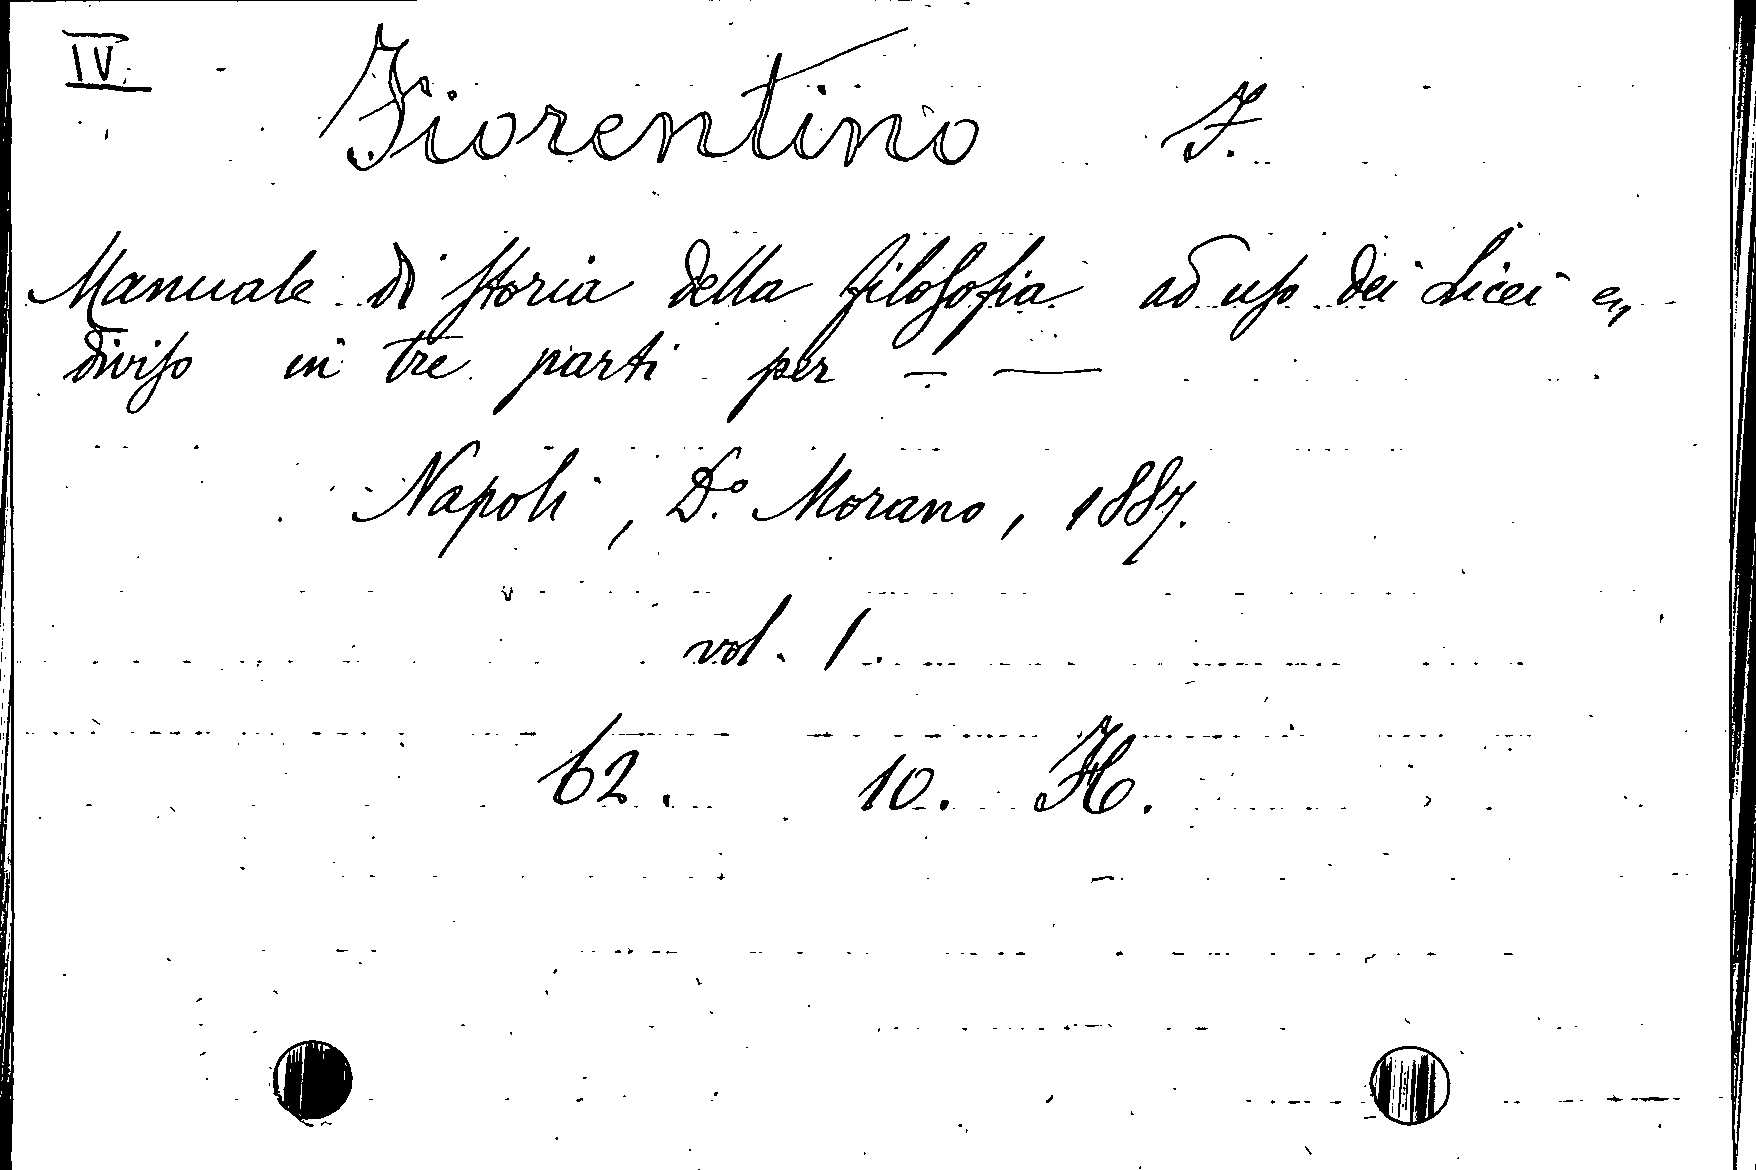 IV.
Fiorentino F.
Manuale di storia della filosofia ad uso dei Licei
diviso in tre parti per — —
Napoli, D.º Morano, 1887.
vol. 1.
62. 10. H.